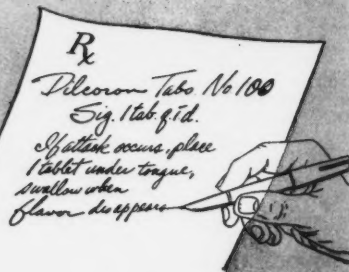 Rx
Dilcoron Tabs No 100
Sig. 1 tab. q.i.d.
If attack occurs, place
1 tablet under tongue,
swallow when
flavor disappears